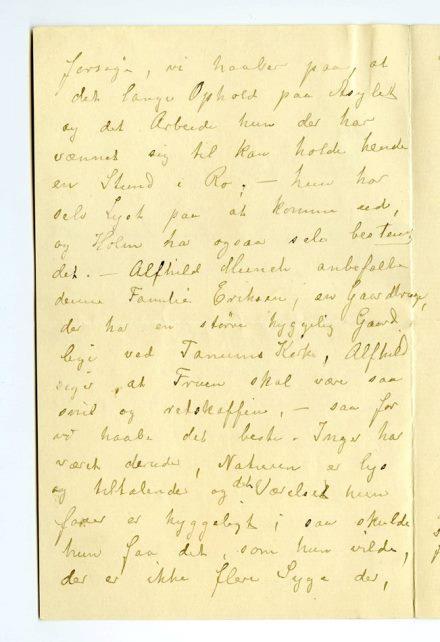 forsøge, vi haaber paa, at
det lange Ophold paa Asylet
og det Arbeide hun der har
vænnet sig til kan holde hende
en Stund i Ro, – hun har
selv Lyst paa at komme ud,
og Holm har ogsaa selv bestemt
det. – Alfhild Munch anbefalte
denne Familie Eriksen, en Gaardbruger,
der har en større hyggelig Gaard
lige ved Tanums Kirke, Alfhild
siger, at Fruen skal være saa
snil og retskaffen, – saa for
vi haabe det beste. Inger har
været derude, Naturen er lys
og tiltalende og det Værelset hun
faaer er hyggeligt, saa skulde
hun faa det, som hun vilde,
der er ikke flere Syge der,